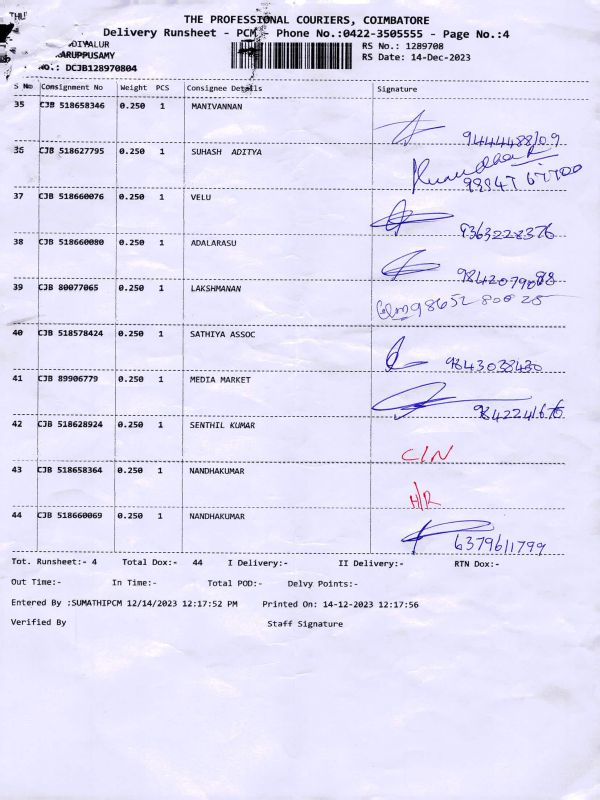 THE PROFESSIONAL COURIERS, COIMBATORE
Delivery Runsheet - PCM - Phone No.:0422-3505555 - Page No.:4
RS No.: 1289708
RS Date: 14-Dec-2023
NO.: DCJB128970804
S No Consignment No Weight PCS Consignee Details Signature
35 CJB 518658346 0.250 1 MANIVANNAN
36 CJB 518627795 0.250 1 SUHASH ADITYA
37 CJB 518660076 0.250 1 VELU 9363228376
38 CJB 518660080 0.250 1 ADALARASU
39 CJB 80077065 0.250 1 LAKSHMANAN 98652 80025
40 CJB 518578424 0.250 1 SATHIYA ASSOC 9843038430
41 CJB 89906779 0.250 1 MEDIA MARKET
42 CJB 518628924 0.250 1 SENTHIL KUMAR C/N
43 CJB 518658364 0.250 1 NANDHAKUMAR H/R
44 CJB 518660069 0.250 1 NANDHAKUMAR 6379611799
Tot. Runsheet:- 4 Total Dox:- 44 I Delivery:- II Delivery:- RTN Dox:-
Out Time:- In Time:- Total POD:- Delvy Points:-
Entered By :SUMATHIPCM 12/14/2023 12:17:52 PM Printed On: 14-12-2023 12:17:56
Verified By Staff Signature